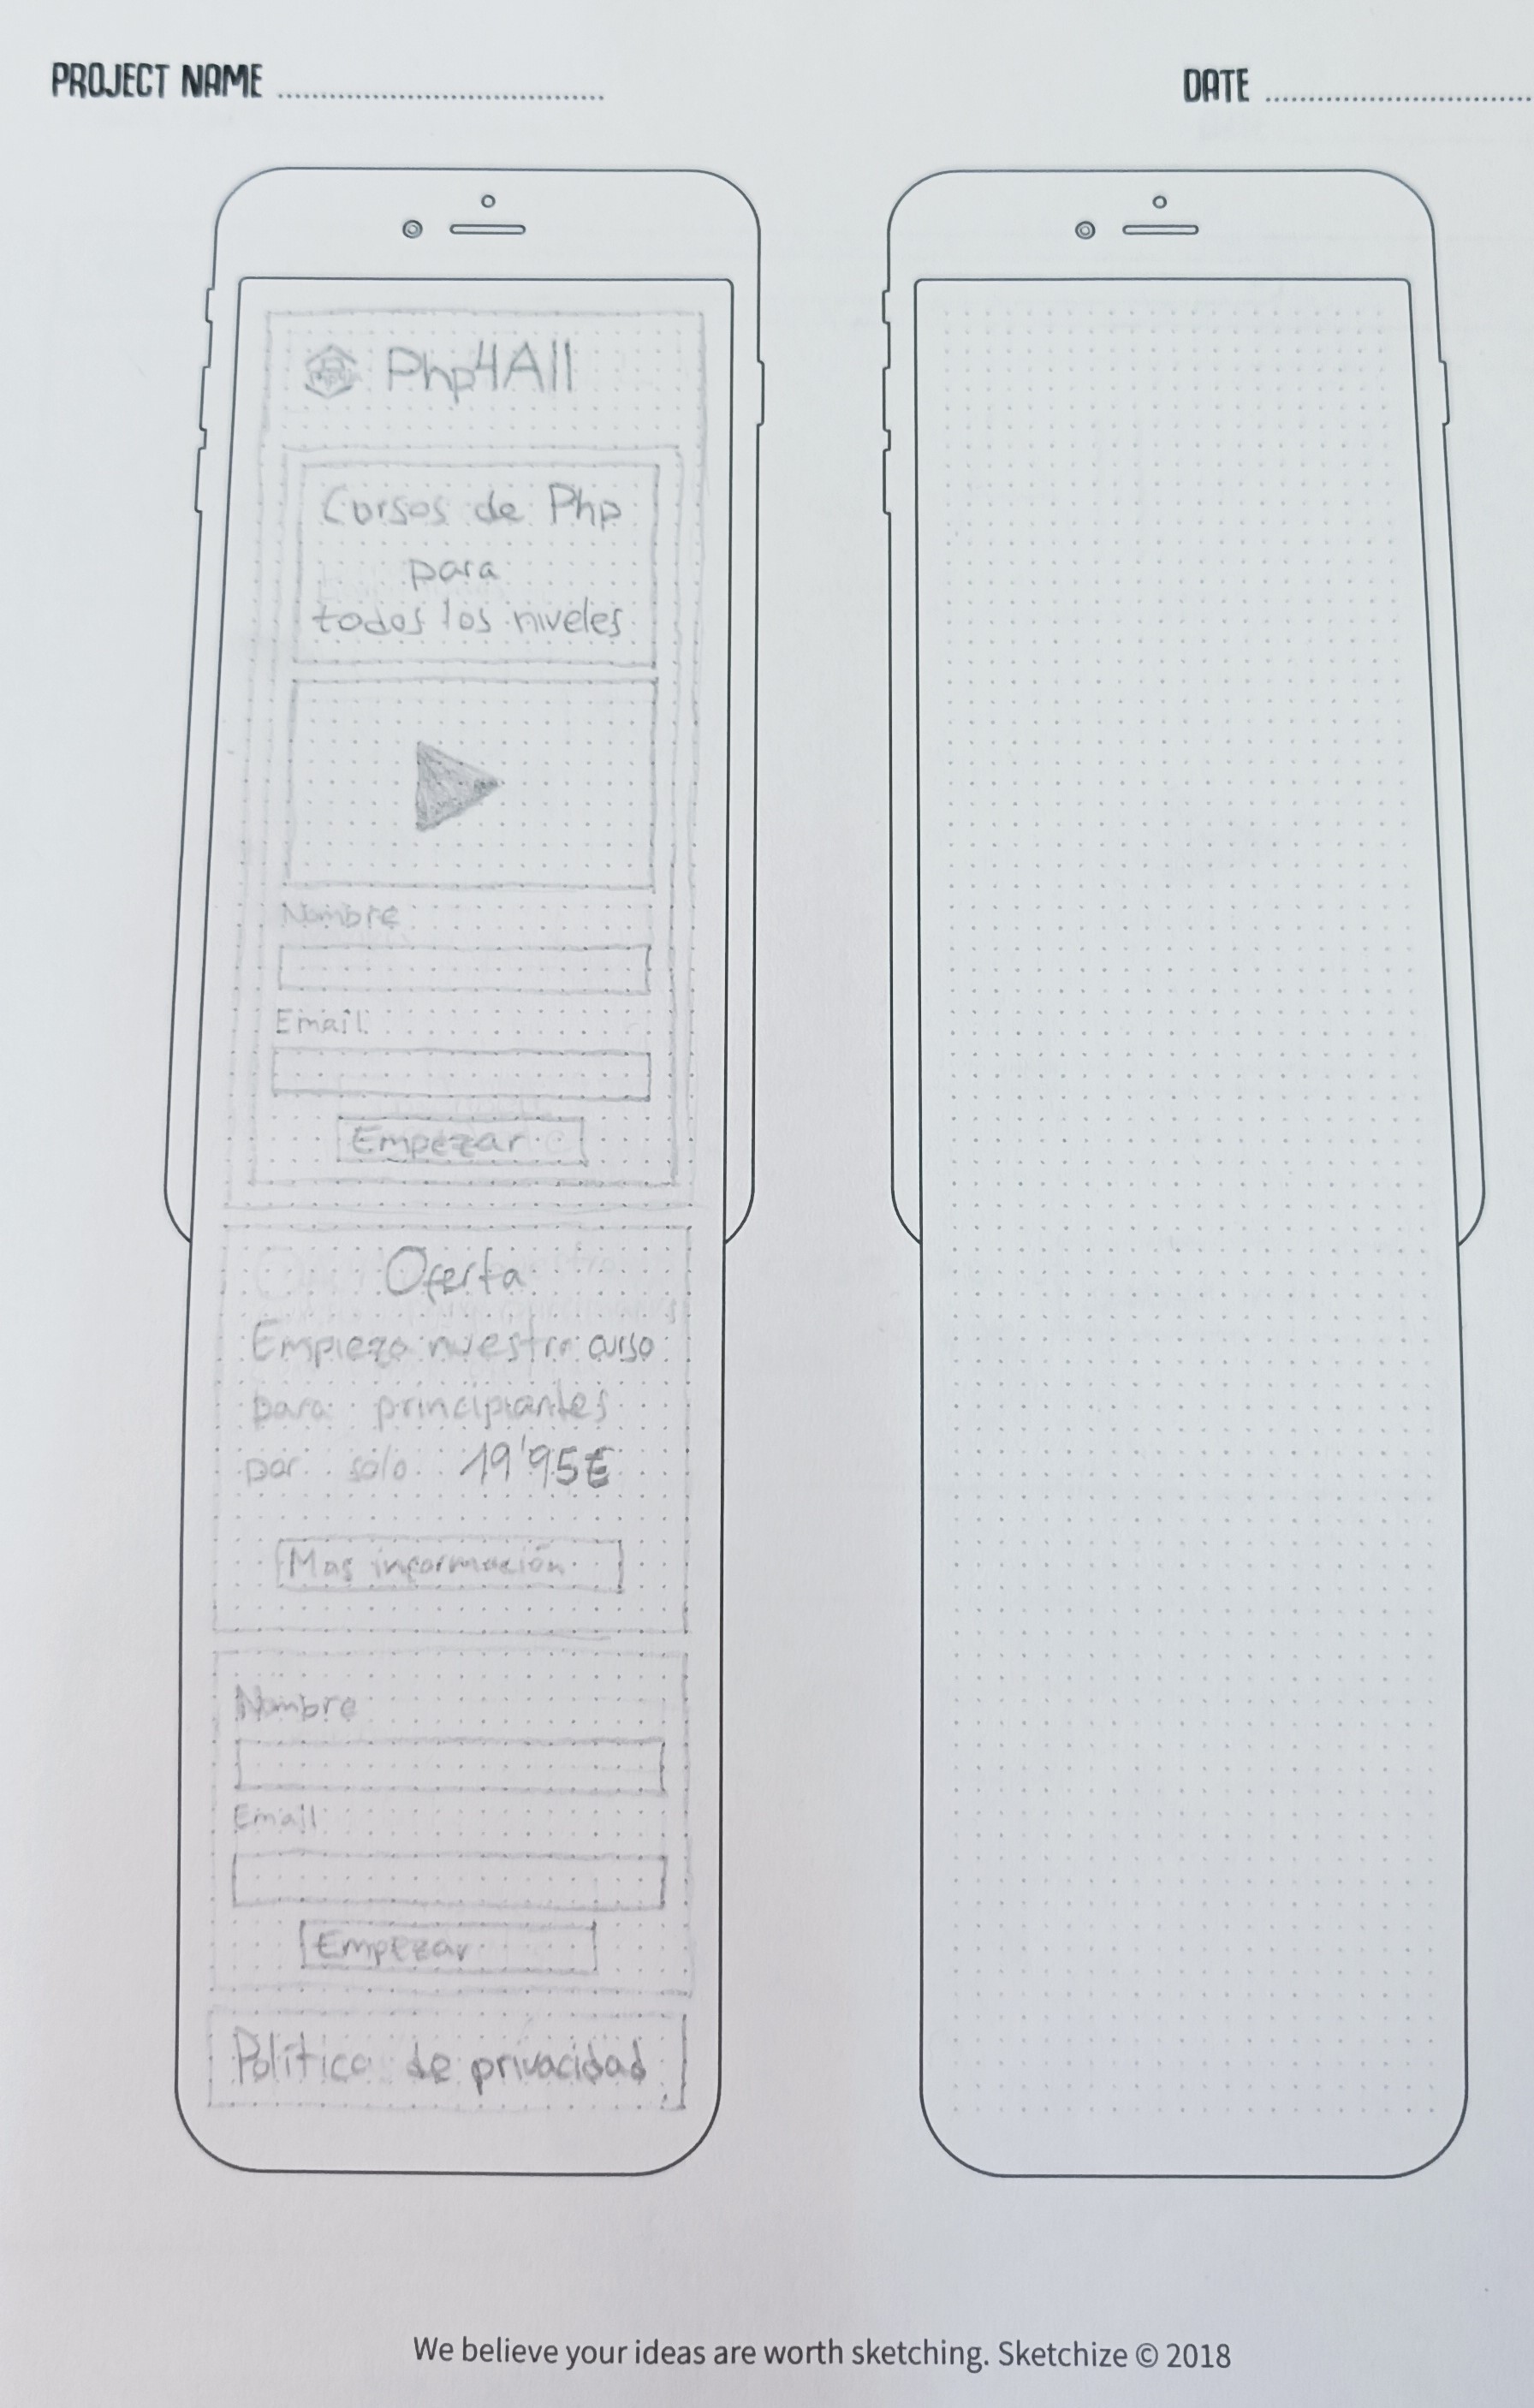 PROJECT NAME
DATE
Php4All
Cursos de Php
para
todos los niveles
Nombre
Email
Empezar
Oferta
Empieza nuestro curso
para principiantes
por solo 19'95€
Mas información
Nombre
Email
Empezar
Política de privacidad
We believe your ideas are worth sketching. Sketchize © 2018